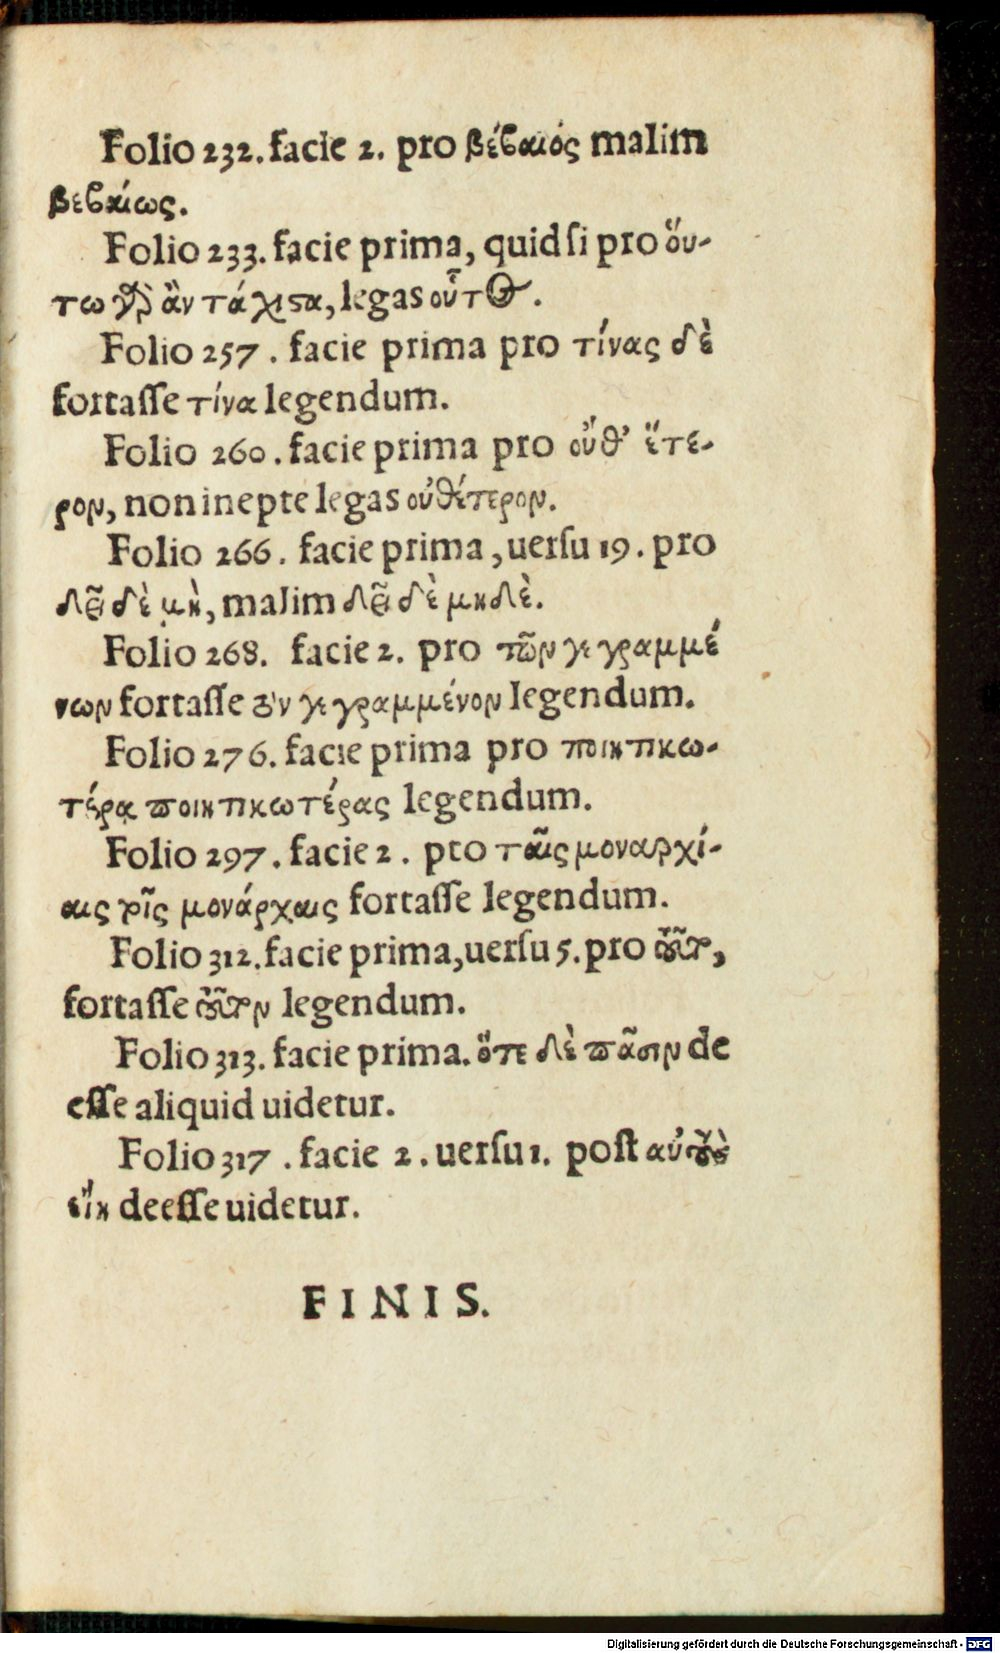 Folio 232. facie 2. pro βέβαιός malim
βεβαίως.
Folio 233. facie prima, quid si pro ὅυ-
τω γὰρ ἂν τάχιστα, legas οὗτος.
Folio 257. facie prima pro τίνας δὲ
fortasse τίνα legendum.
Folio 260. facie prima pro οὔθ’ ἕτε-
ρον, non inepte legas οὐθέτερον.
Folio 266. facie prima, uersu 19. pro
δεῖ δὲ μὴ, malim δεῖ δὲ μηδὲ.
Folio 268. facie 2. pro τῶν γεγραμμέ
νων fortasse τὸν γεγραμμένον legendum.
Folio 276. facie prima pro ποιητικω-
τέρα ποιητικωτέρας legendum.
Folio 297. facie 2. pro ταῖς μοναρχί-
αις τοῖς μονάρχαις fortasse legendum.
Folio 312. facie prima, uersu 5. pro
fortasse legendum.
Folio 313. facie prima. ὅτε δὲ πᾶσιν de
esse aliquid uidetur.
Folio 317. facie 2. uersu 1. post
εἴη deesse uidetur.
FINIS.
Digitalisierung gefördert durch die Deutsche Forschungsgemeinschaft - DFG